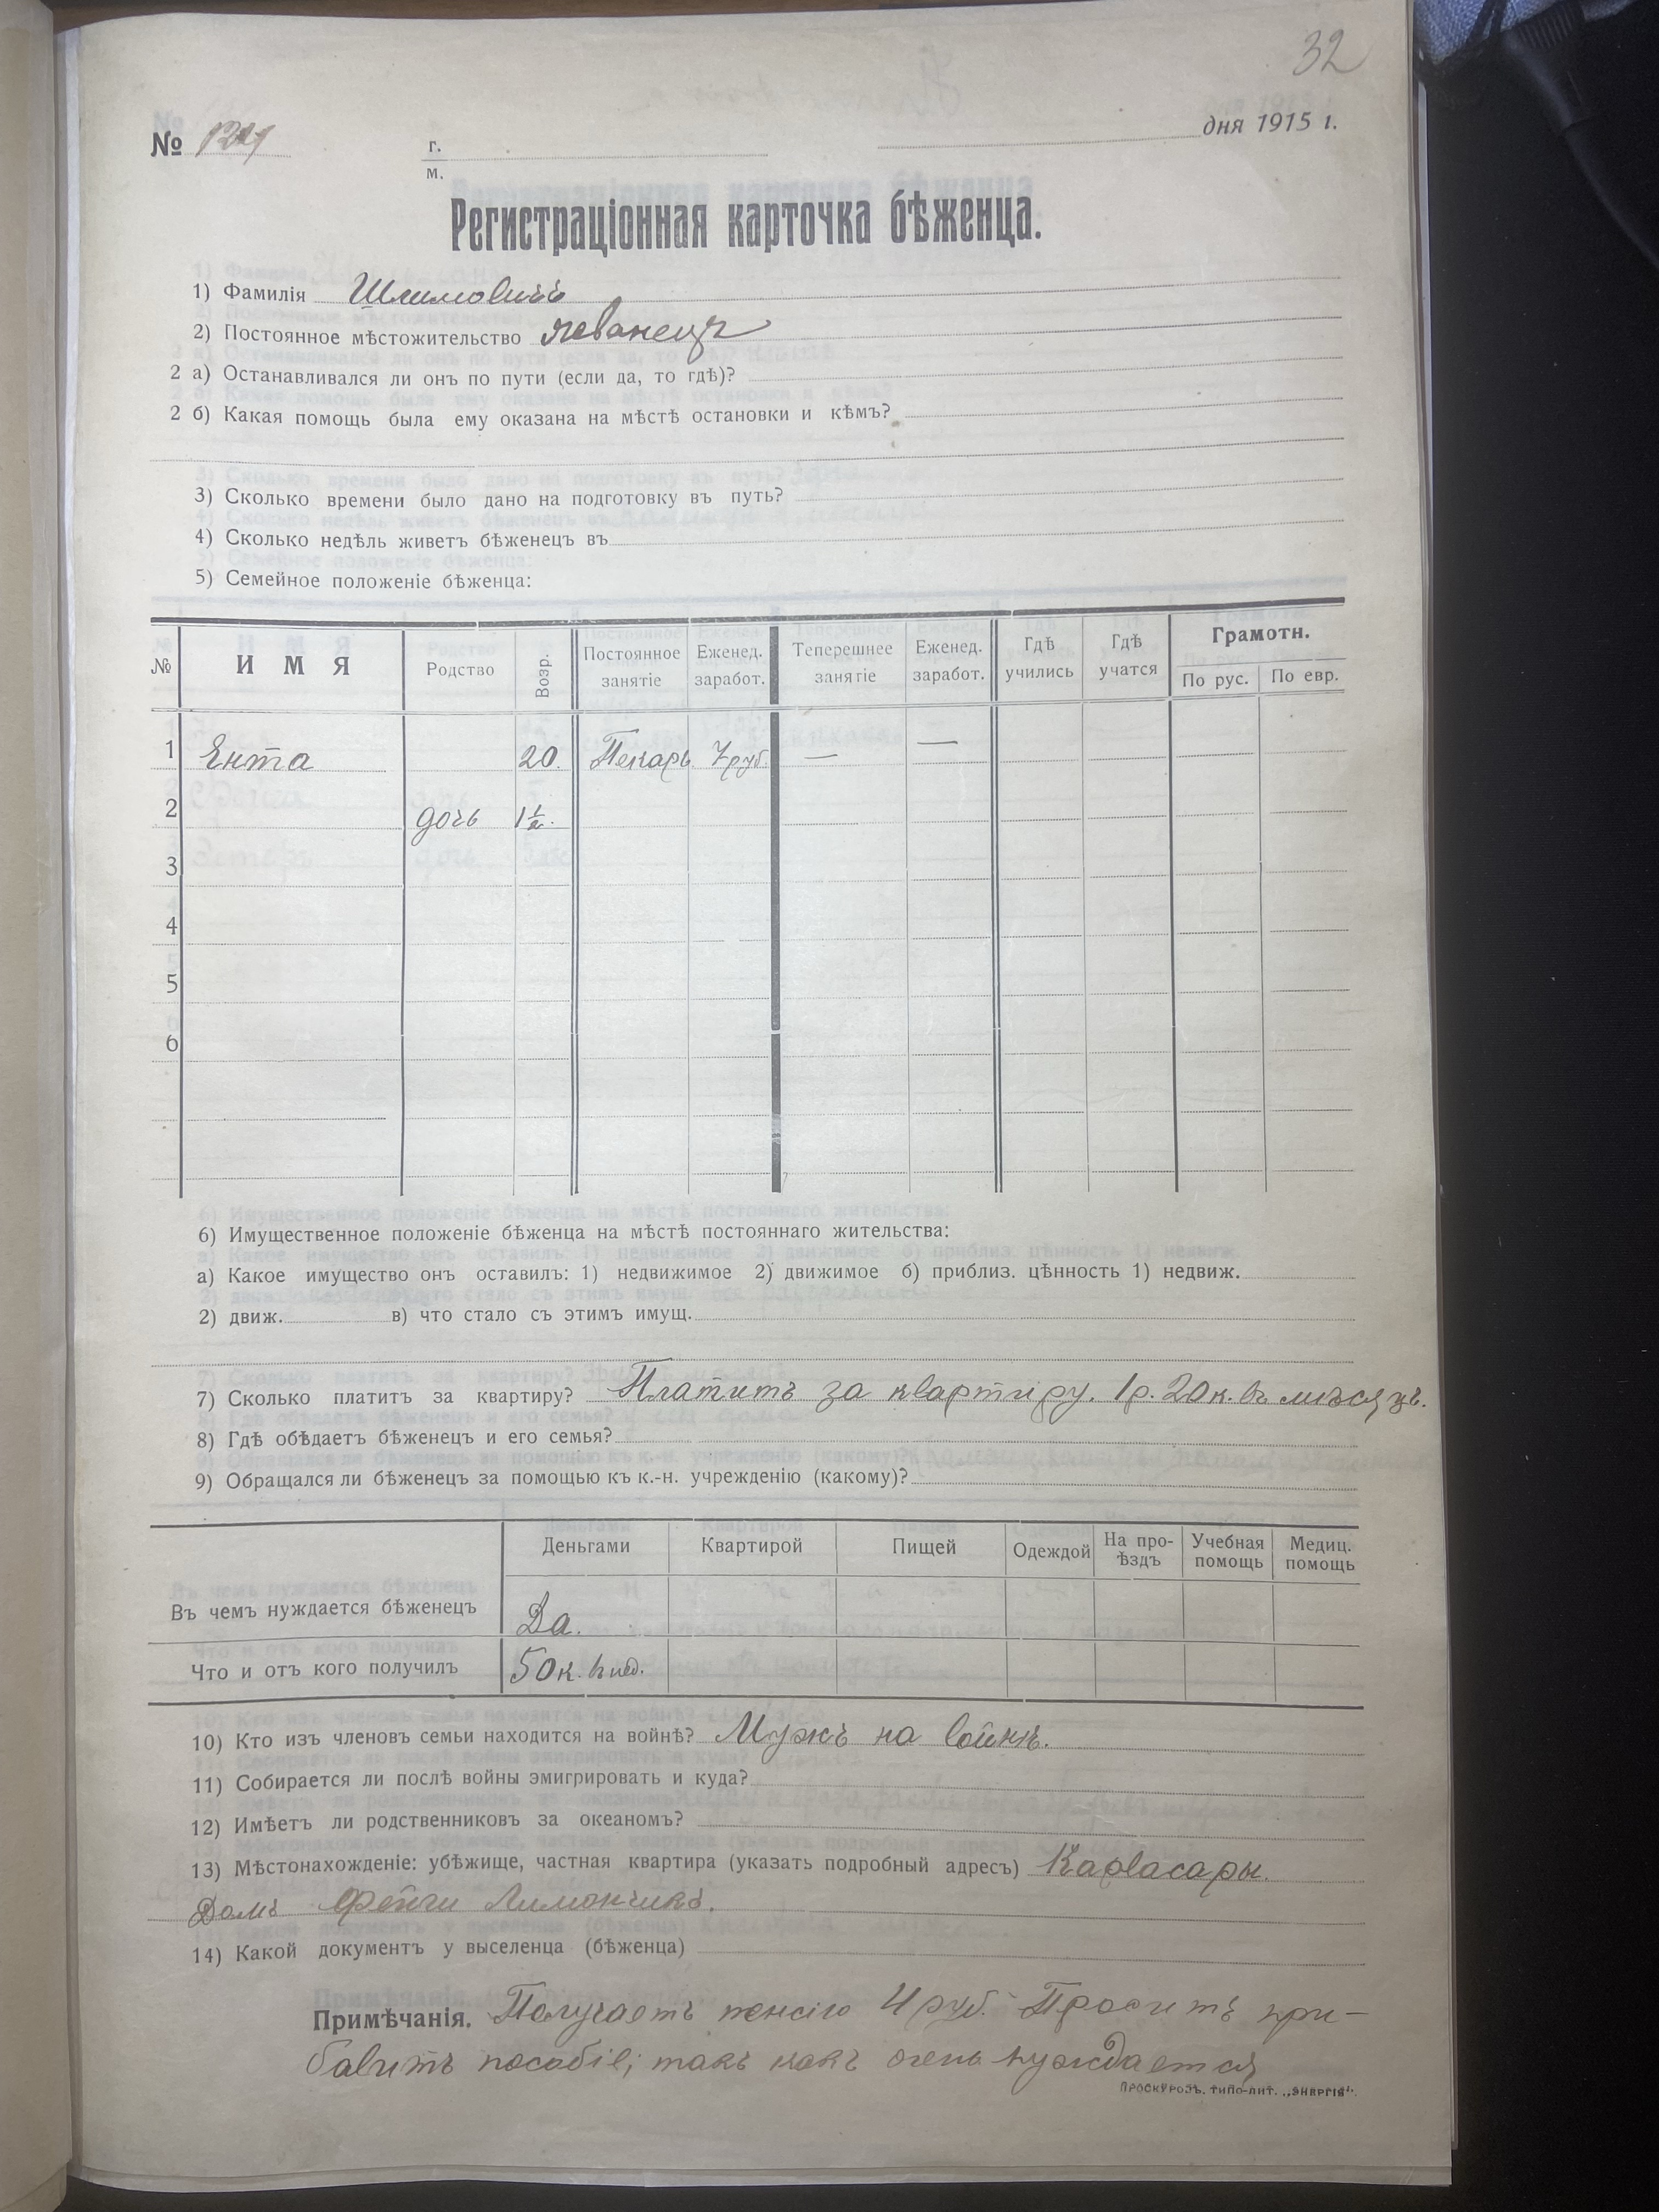 32
№ г. дня 1915 г.
м.
Регистраціонная карточка бѣженца.
1) Фамилія Шлимовичъ
2) Постоянное мѣстожительство Жванецъ
2 а) Останавливался ли онъ по пути (если да, то гдѣ)?
2 б) Какая помощь была ему оказана на мѣстѣ остановки и кѣмъ?
3) Сколько времени было дано на подготовку въ путь?
4) Сколько недѣль живетъ бѣженец въ
5) Семейное положеніе бѣженца:
№ ИМЯ Родство Возр. Постоянное занятіе Еженед. заработ. Теперешнее занятіе Еженед. заработ. Гдѣ учились Гдѣ учатся Грамотн. По рус. По евр.
1 Ента 20. Пекарь 7 руб. — —
2 дочь 1½.
3
4
5
6
6) Имущественное положеніе бѣженца на мѣстѣ постояннаго жительства:
а) Какое имущество онъ оставилъ: 1) недвижимое 2) движимое б) приблиз. цѣнность 1) недвиж.
2) движ. в) что стало съ этимъ имущ.
7) Сколько платитъ за квартиру? Платитъ за квартиру. 1 р. 20 к. въ мѣсяцъ.
8) Гдѣ обѣдаетъ бѣженец и его семья?
9) Обращался ли бѣженец за помощью къ к.-н. учрежденію (какому)?
Деньгами Квартирой Пищей Одеждой На проѣздъ Учебная помощь Медиц. помощь
Въ чемъ нуждается бѣженецъ Да.
Что и отъ кого получилъ 50 к. в нед.
10) Кто изъ членовъ семьи находится на войнѣ? Мужъ на войнѣ.
11) Собирается ли послѣ войны эмигрировать и куда?
12) Имѣетъ ли родственниковъ за океаномъ?
13) Мѣстонахожденіе: убѣжище, частная квартира (указать подробный адресъ) Карвасары.
Домъ Лимончикъ.
14) Какой документъ у выселенца (бѣженца)
Примѣчанія. Получаетъ пенсію 4 руб. Проситъ при-
бавить пособіе; такъ какъ очень нуждается
ПРОСКУРОВЪ. ТИПО-ЛИТ. „ЭНЕРГІЯ“.